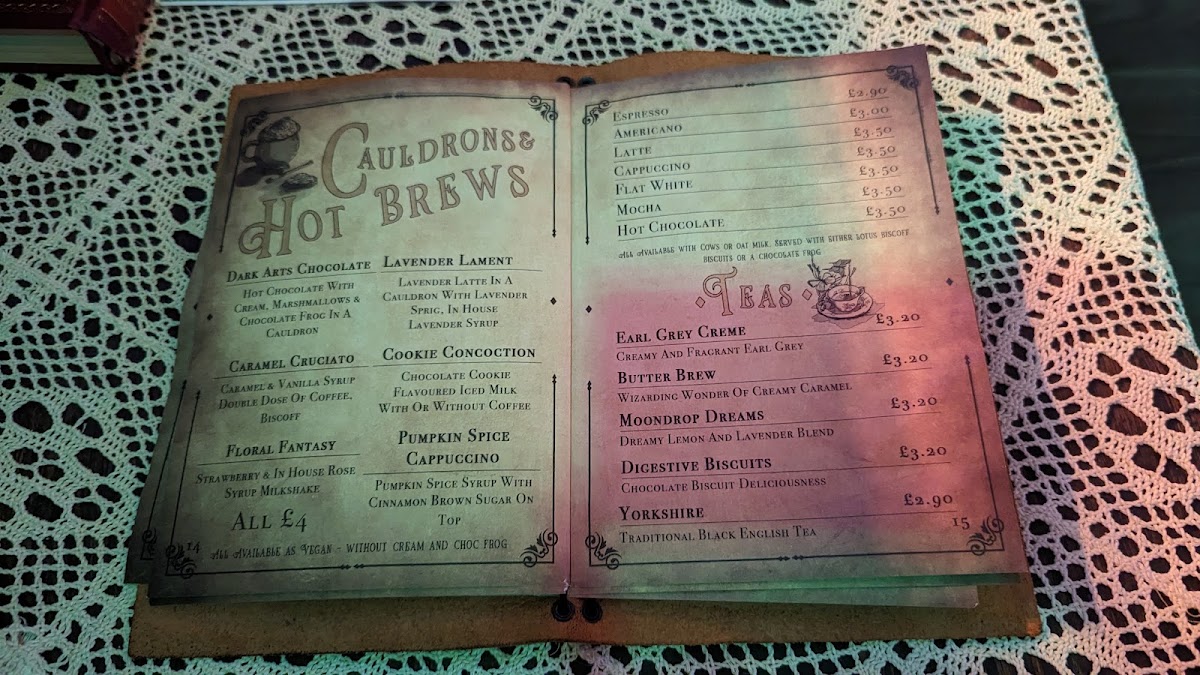 Cauldrons &
Hot Brews
Dark Arts Chocolate
Hot Chocolate With
Cream, Marshmallows &
Chocolate Frog In A
Cauldron
Caramel Cruciato
Caramel & Vanilla Syrup
Double Dose Of Coffee,
Biscoff
Floral Fantasy
Strawberry & In House Rose
Syrup Milkshake
All £4
Lavender Lament
Lavender Latte In A
Cauldron With Lavender
Sprig, In House
Lavender Syrup
Cookie Concoction
Chocolate Cookie
Flavoured Iced Milk
With Or Without Coffee
Pumpkin Spice
Cappuccino
Pumpkin Spice Syrup With
Cinnamon Brown Sugar On
Top
14 All Available as Vegan - without cream and choc frog
Espresso £2.90
Americano £3.00
Latte £3.50
Cappuccino £3.50
Flat White £3.50
Mocha £3.50
Hot Chocolate £3.50
All Available with Cows or oat milk. Served with either lotus biscoff
biscuits or a chocolate frog
Teas
Earl Grey Creme £3.20
Creamy And Fragrant Earl Grey
Butter Brew £3.20
Wizarding Wonder Of Creamy Caramel
Moondrop Dreams £3.20
Dreamy Lemon And Lavender Blend
Digestive Biscuits £3.20
Chocolate Biscuit Deliciousness
Yorkshire £2.90
Traditional Black English Tea
15